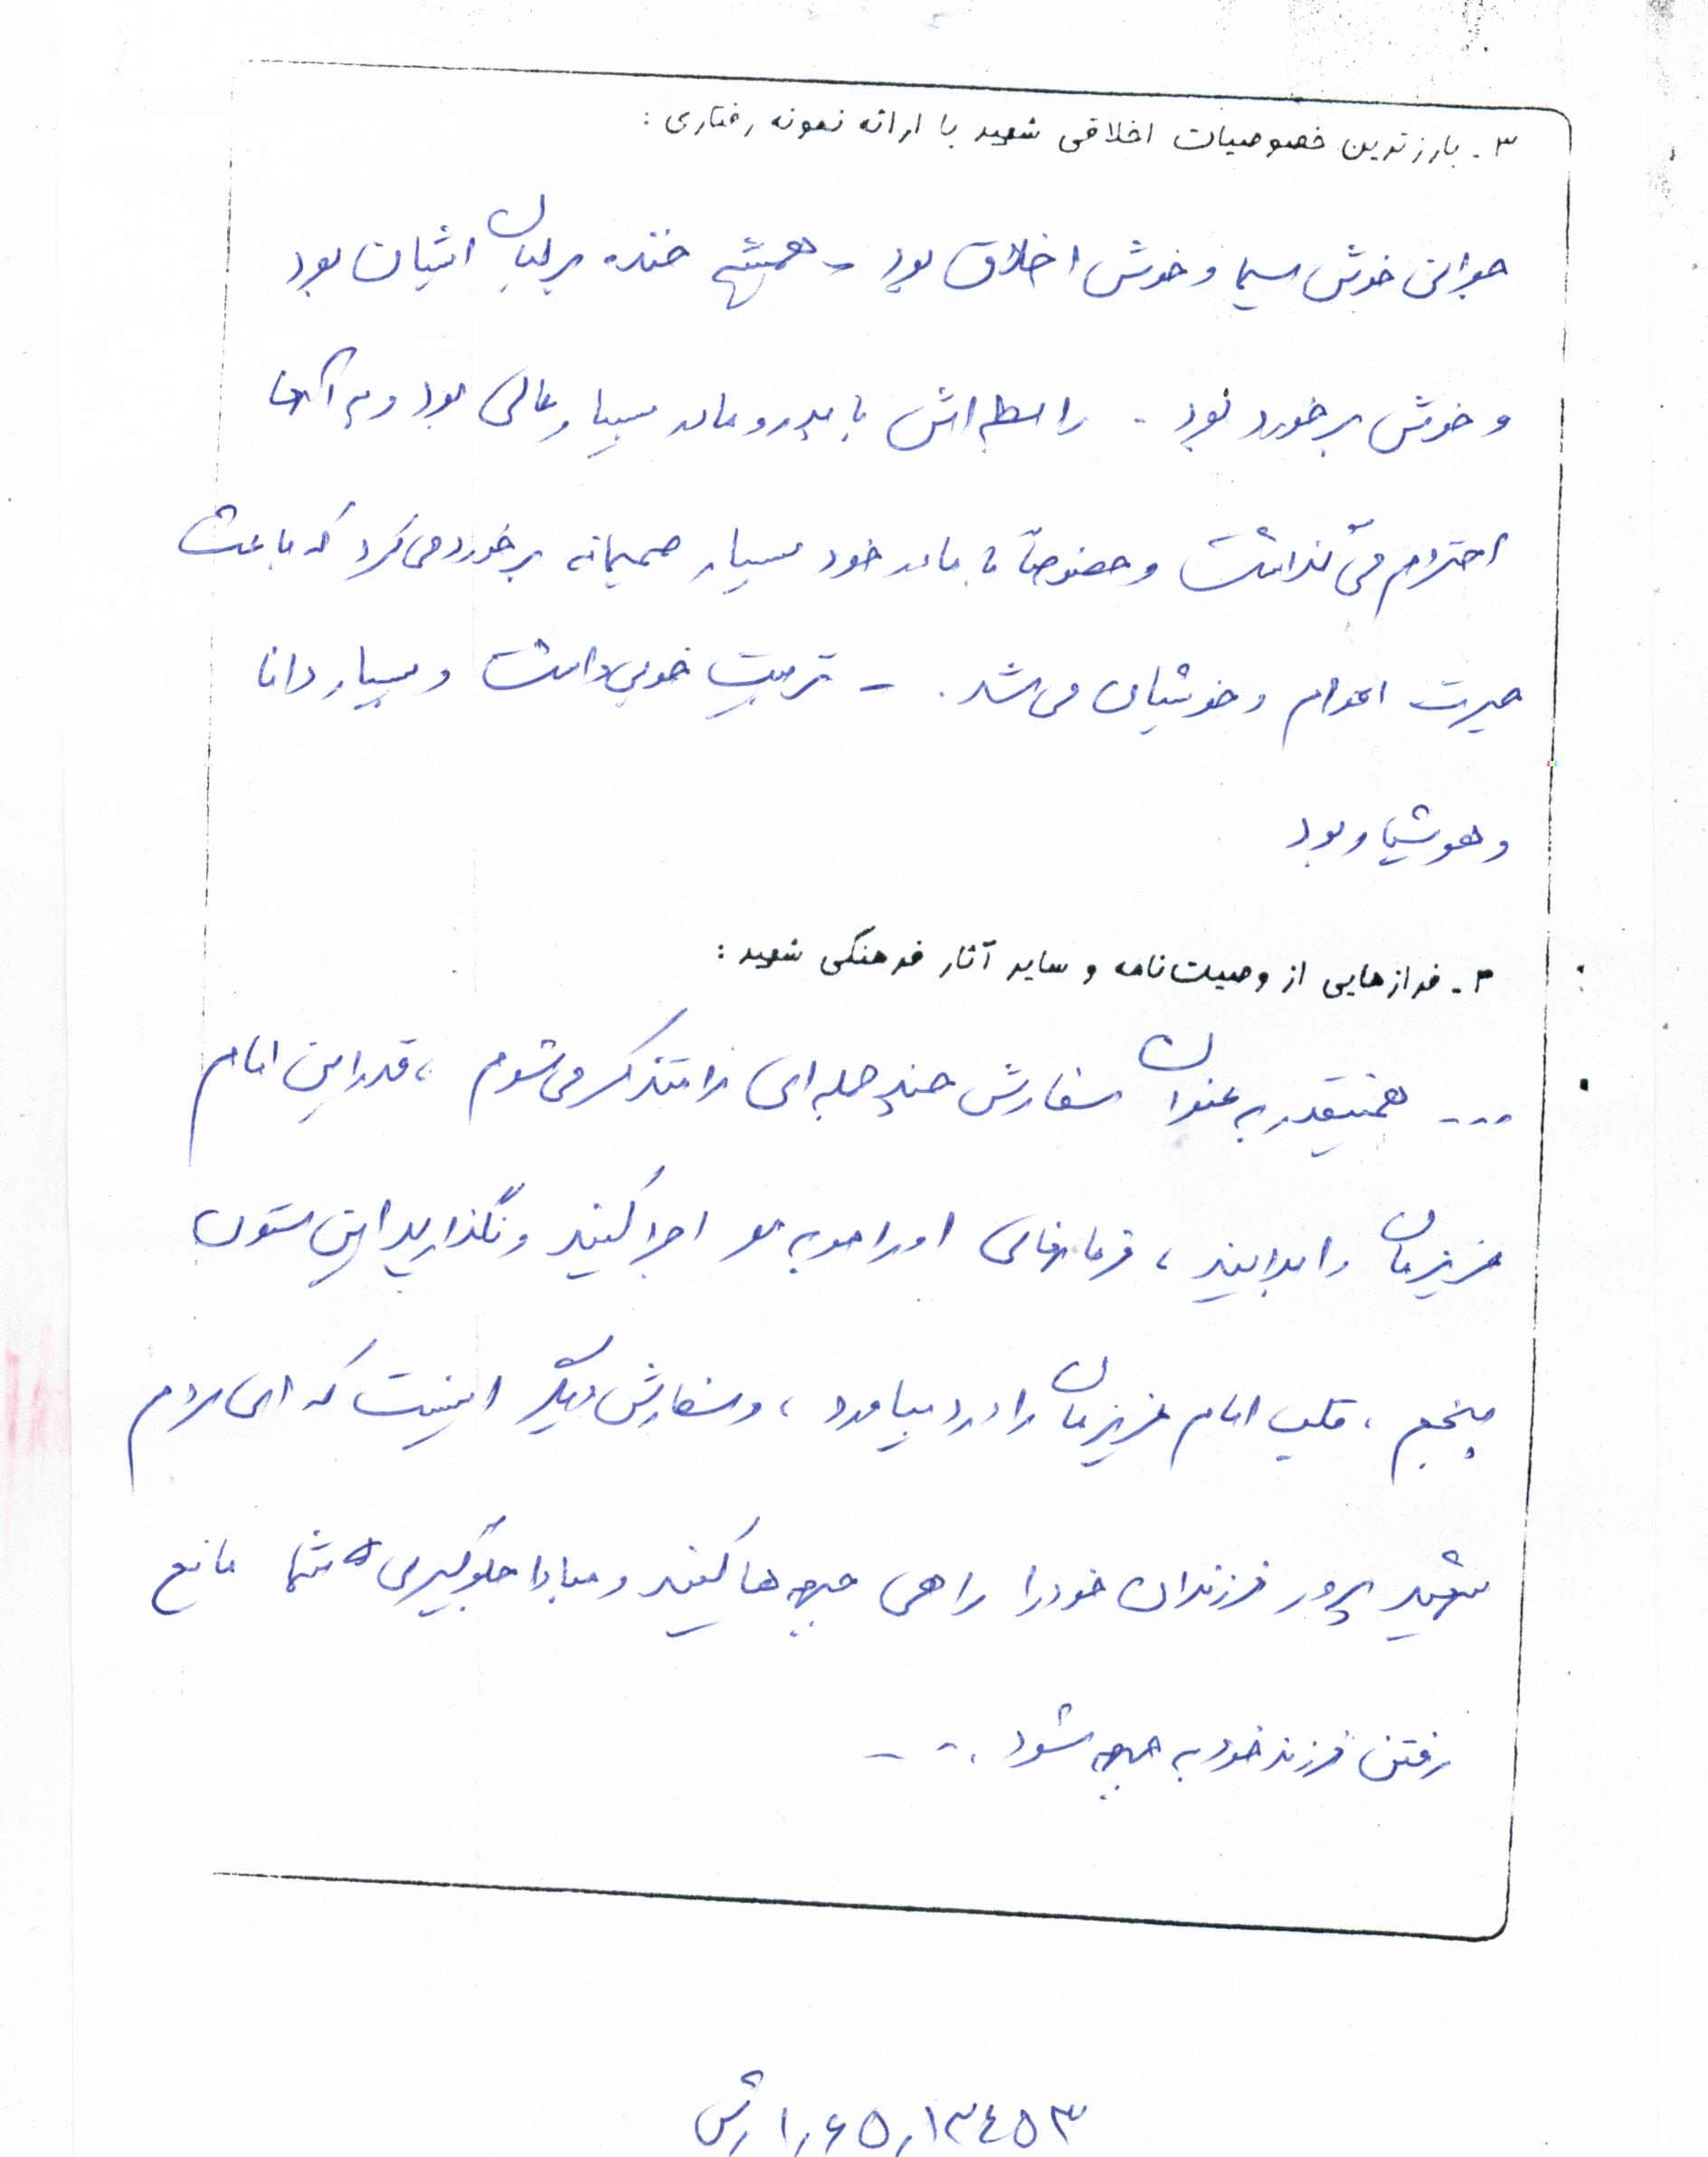 ۳- بارزترین خصوصیات اخلاقی شهید با ارائه نمونه رفتاری:
جوانی خوش سیما و خوش اخلاق بود - همیشه خنده بر لبان ایشان بود
و خوش برخورد بود - رابطه اش با پدر و مادر بسیار عالی بود و به آنها
احترام می گذاشت و خصوصاً با مادر خود بسیار صمیمانه برخورد می کرد که باعث
حیرت اقوام و خویشان می شد. - تربیت خوبی داشت و بسیار دانا
و هوشیار بود
۴- فرازهایی از وصیت‌نامه و سایر آثار فرهنگی شهید:
... همینقدر به عنوان سفارش چند جمله ای را متذکر می شوم ، قدر این امام
عزیزمان را بدانید ، فرمانهای او را مو به مو اجرا کنید و نگذارید این ستون
پنجم ، قلب امام عزیزمان را درد بیاورد ، و سفارش دیگر اینست که ای مردم
شهید پرور فرزندان خود را راهی جبهه ها کنید و مبادا جلوگیری شما مانع
رفتن فرزند خود به جبهه شود . - -
۱۳۴۵۳ر۶۵ر۱رش